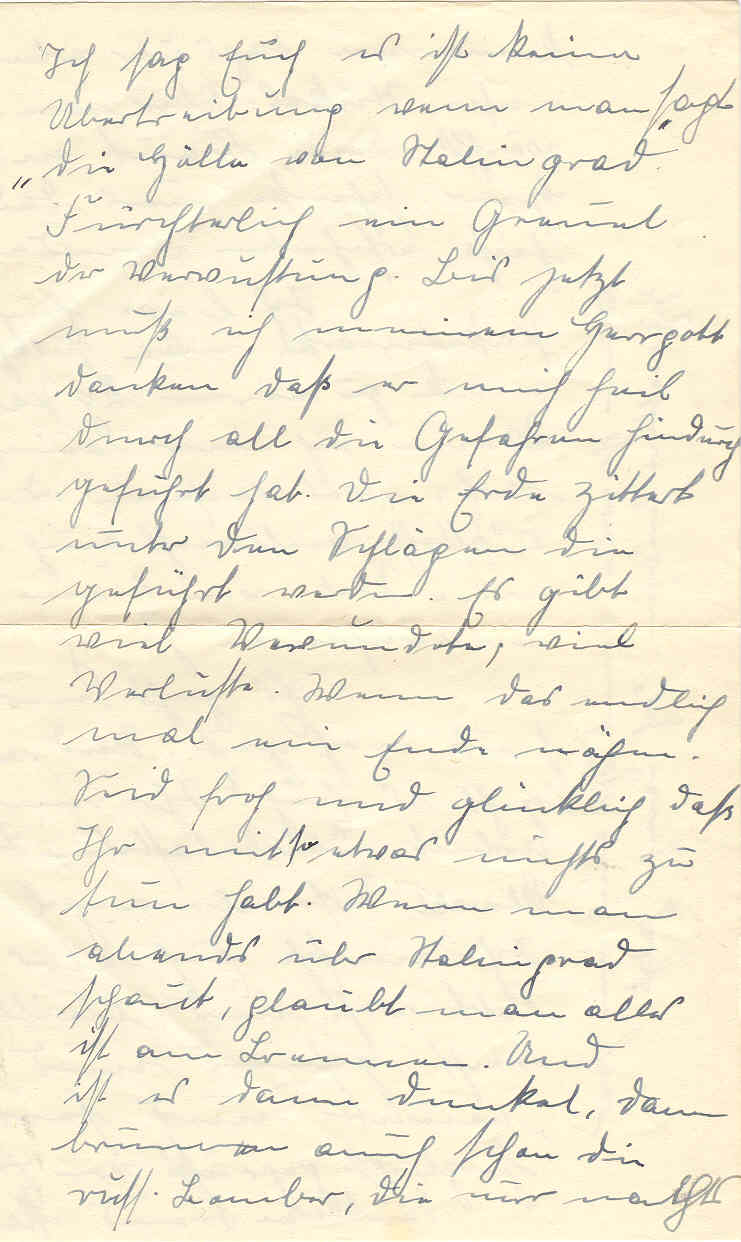 Ich sag Euch es ist keine
Übertreibung wenn man sagt
„die Hölle von Stalingrad".
Fürchterlich ein Greuel
der Verwüstung. Bis jetzt
muß ich meinem Herrgott
danken daß er mich heil
durch all die Gefahren hindurch
geführt hat. Die Erde zittert
unter den Schlägen die
geführt werden. Es gibt
viel Verwundete, viel
Verluste. Wenn das endlich
mal ein Ende nähme.
Seid froh und glücklich daß
Ihr mit so etwas nichts zu
tun habt. Wenn man
abends über Stalingrad
schaut, glaubt man alles
ist am Brennen. Und
ist es dann dunkel, dann
brummen auch schon die
russ. Bomber, die nur nachts